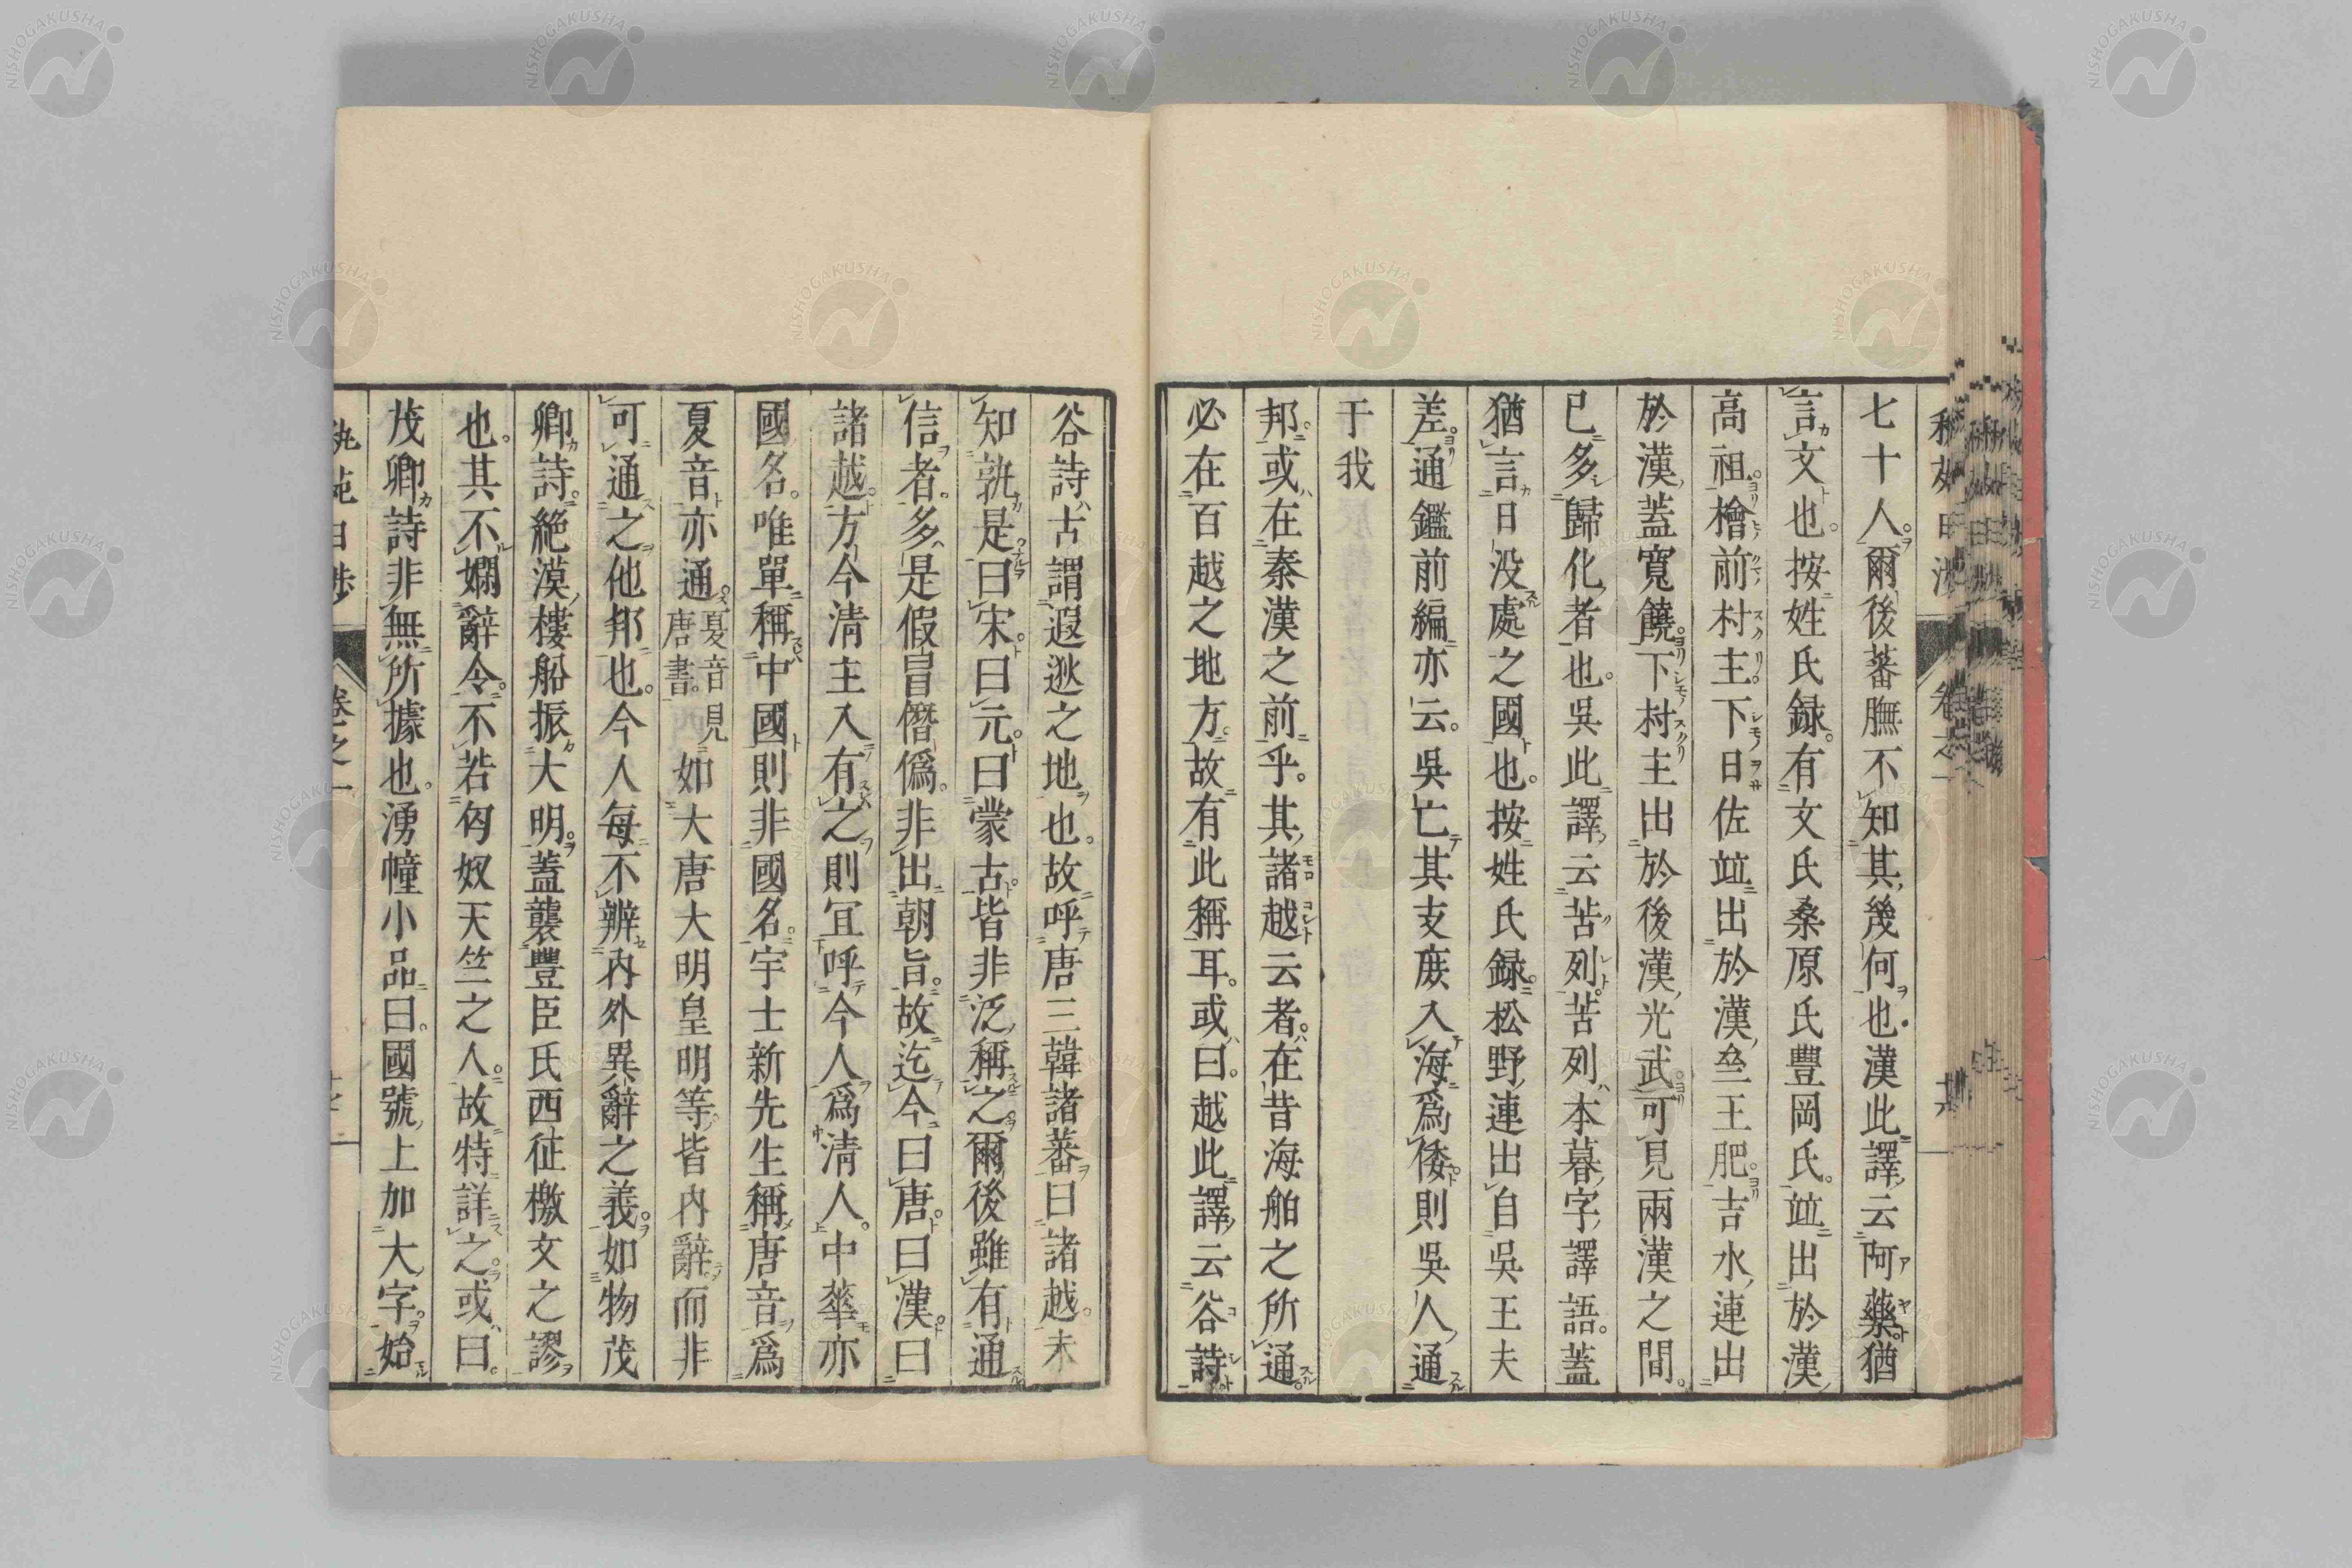 七十人。爾後蕃膴不知其幾何也。漢此譯云阿藥。猶
言文也。按姓氏録。有文氏桑原氏豐岡氏。竝出於漢
高祖。檜前村主。下日佐竝出於漢。亝王肥。吉水連出
於漢蓋寬饒。下村主出於後漢光武。可見兩漢之間。
已多歸化者也。吳此譯云苦列。苦列本暮字譯語。蓋
猶言日没處之國也。按姓氏録。松野連出自吳王夫
差。通鑑前編亦云。吳亡其支庻入海爲倭。則吳人通
于我
邦。或在秦漢之前乎。其諸越云者。在昔海舶之所通。
必在百越之地方。故有此稱耳。或曰。越此譯云谷詩。
谷詩古謂遐逖之地也。故呼唐三韓諸蕃曰諸越。未
知孰是。曰宋。曰元。曰蒙古。皆非泛稱之。爾後雖有通
信者。多是假冒僭僞。非出朝旨。故迄今曰唐。曰漢。曰
諸越。方今清主入有之。則宜呼今人爲清人。中華亦
國名。唯單稱中國則非國名。宇士新先生稱唐音爲
夏音亦通。夏音見唐書。如大唐大明皇明等。皆内辭。而非
可通之他邦也。今人每不辨内外異辭之義。如物茂
卿詩。絕漠樓船振大明。蓋襲豐臣氏西征檄文之謬
也。其不嫺辭令。不若匈奴天竺之人。故特詳之。或曰。
茂卿詩非無所據也。湧幢小品曰。國號上加大字。始
卷之一